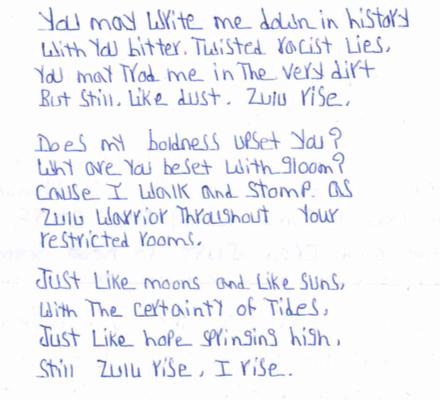 You may Write me down in history
With You bitter. Twisted racist Lies,
You may Trod me in The very dirt
But Still. Like dust. Zulu rise,
Does my boldness upset You?
Why are You beset With gloom?
Cause I Walk and Stomp. as
Zulu Warrior Throughout Your
restricted rooms.
Just Like moons and Like Suns,
With The Certainty of Tides,
Just Like hope springing high,
Still Zulu rise, I rise.